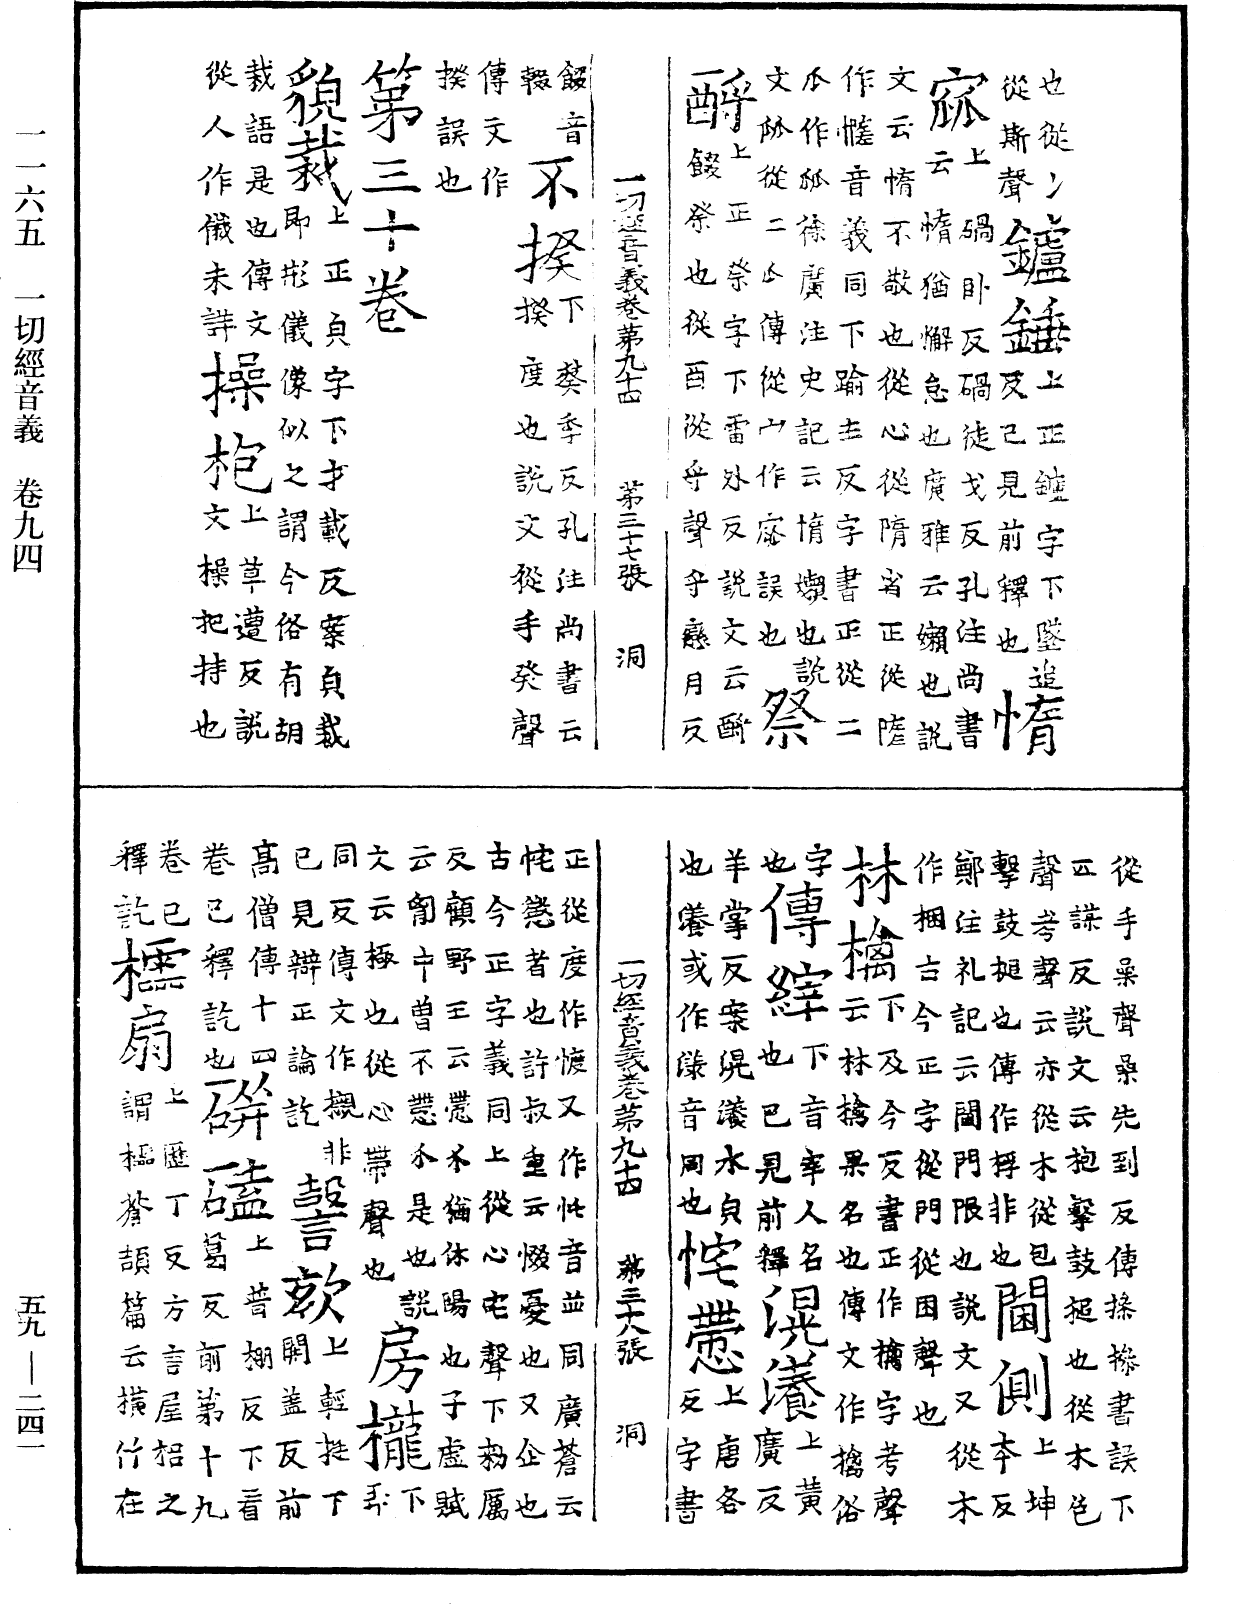 一一六五　一切經音義　卷九四
也從冫
從斯聲鑪錘上正鑪字下墜追
反已見前釋也惰
窳上碢臥反碢徒戈反孔注尚書
云惰猶懈怠也廣雅云嬾也說
文云惰不敬也從心從隋省正從隓
作憜音義同下踰主反字書正從二
瓜作㼌徐廣注史記云惰嬾也說
文㼌從二瓜傳從宀作窳誤也祭
酹上正祭字下雷外反說文云酹
餟祭也從酉從寽聲寽戀月反
一切經音義卷第九十四　第三十七張　洞
餟音
輟不揆下葵季反孔注尚書云
揆度也說文從手癸聲
傳文作
揆誤也
第三十卷
貌裁上正貞字下才載反案貞裁
即形儀像似之謂今俗有胡
裁語是也傳文
從人作儀未詳操枹上草遭反說
文操把持也
從手喿聲喿先到反傳摻摻書誤下
五謀反說文云枹擊鼓搥也從木包
聲考聲云亦從木從包
擊鼓搥也傳作桴非也閫側上坤
本反
鄭注礼記云閫門限也說文又從木
作梱古今正字從門從困聲也
林檎下及今反書正作檎字考聲
云林檎果名也傳文作擒俗
字
也傳縡下音宰人名
也已見前釋滉瀁上黃
廣反
羊掌反案滉瀁水貞
也瀁或作漾音同也恅懘上唐各
反字書
一切經音義卷第九十四　第三十八張　洞
正從度作㦜又作忙音並同廣蒼云
恅㦬者也許叔重云惙憂也又企也
古今正字義同上從心宅聲下勑厲
反顧野王云懘不猶休陽也子虛賦
云胷中曾不懘介是也說
文云極也從心帶聲也房櫳下
同反傳文作襱非
已見辯正論訖謦欬上輕挺下
開蓋反前
高僧傳十四
卷已釋訖也硑磕上普棚反下看
葛反前第十九
卷已
釋訖欞扇上歷丁反方言屋梠之
謂欞蒼頡篇云橫竹在
五九—二四一